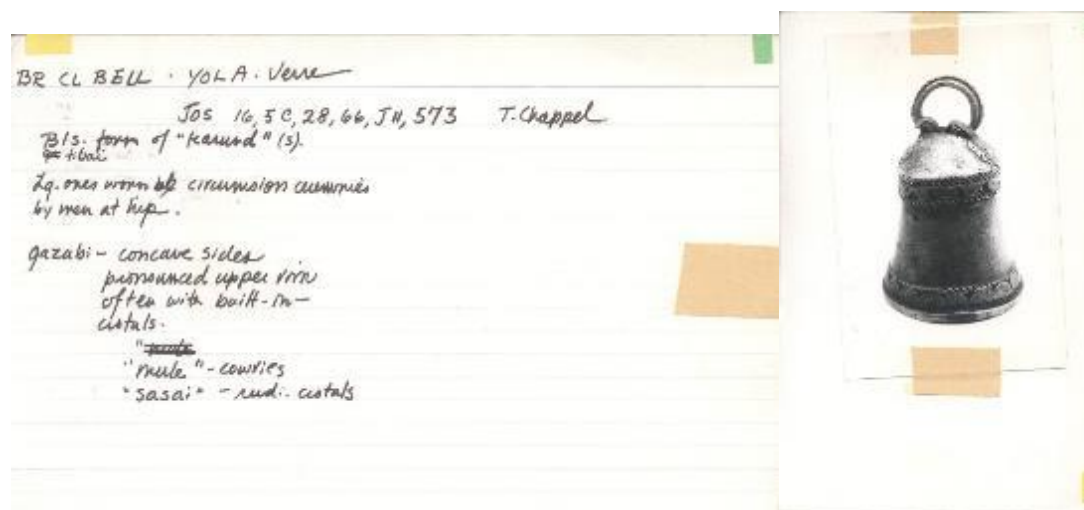 BR CL BELL . YOLA . Verre
JOS 16, 5C, 28, 66, J11, 573 T. Chappel
B/s. form of "karund" (s).
tibai
Lg. ones worn circumsion
by men at hip.
gazabi - concave sides
pronounced upper rim
often with built-in-
cistals.
"mule" - cowries
"sasai" - rudi. cistals